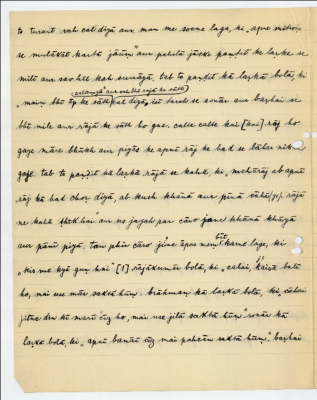 to turant vah cal diyā aur man me socne lagā, ki „apne mitroṃ
se mulākāt kartā jāūṃ" aur pahile jāke paṇḍit ke laṛke se
milā aur sab hāl kah sunāyā. tab to paṇḍit kā laṛkā bolā, ki
„maiṃ bhī āp ke sāth calūṃgā" aur vah bhī rājā ke sāth
cal diyā. isī tarah se sonār aur baṛhai se
bhī mile aur rājā ke sāth ho gae. calte calte kai [kai] roj ho
gaye māre bhūkh aur piyās ke apnī rāj ke had se bāhar nikal
gaye. tab to paṇḍit kā laṛkā rājā se kahā, ki „mahārāj ab apnā
rāj kā had choṛ diyā, ab kuch khānā aur pīnā cāhiye". rājā
ne kahā „ṭhīk hai" aur us jagah par cāro jane khānā khāyā
aur pānī piyā. tau phir cāro jane āpas meṃ bāt karne lage, ki
„kis me kyā guṇ hai" [1] rājākumār bolā, ki „cahai, kaisā bali
ho, mai use mār saktā hūṃ". brāhmaṇ kā laṛkā bolā, ki „cāhai
jitne din kā marā huā ho, mai use jilā saktā hūṃ" sonār kā
laṛkā bolā, ki „apnī banāī cīz mai pahicān saktā hūṃ". baṛhai